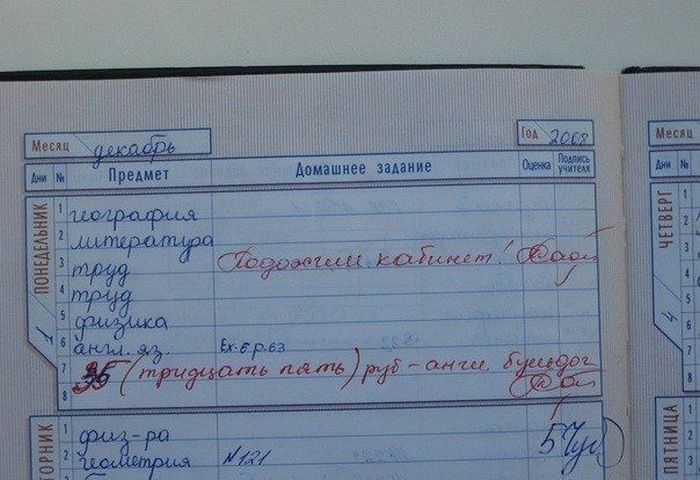 Месяц декабрь Год 2008 Месяц
Дни № Предмет Домашнее задание Оценка Подпись учителя Дни №
ПОНЕДЕЛЬНИК 1
1 география
2 литература
3 труд Подожгли кабинет!
4 труд
5 физика
6 англ. яз. Ex. 6 p. 63
7 35 (тридцать пять) руб - англ. бульдог
8
ТОРНИК
1 физ-ра 5
2 геометрия №121
ЧЕТВЕРГ 4
1
2
3
4
5
6
7
8
ПЯТНИЦА
1
2
3